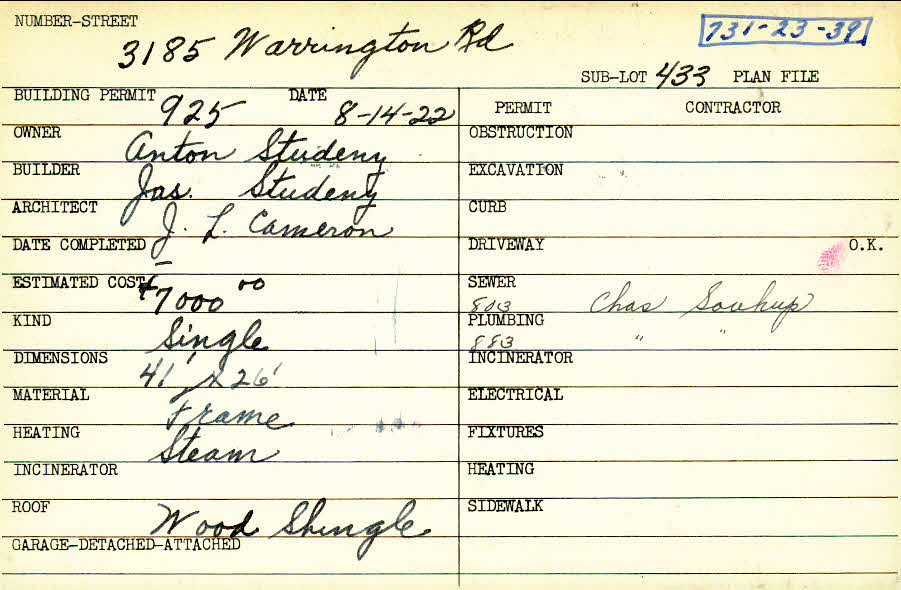 NUMBER-STREET
3185 Warrington Rd
731-23-39
SUB-LOT 433 PLAN FILE
BUILDING PERMIT 925 DATE 8-14-22
PERMIT CONTRACTOR
OWNER Anton Studeny
OBSTRUCTION
BUILDER Jas. Studeny
EXCAVATION
ARCHITECT J. L. Cameron
CURB
DATE COMPLETED –
DRIVEWAY O.K.
ESTIMATED COST $7000 00
SEWER 803 Chas Soukup
KIND Single
PLUMBING 883 " "
DIMENSIONS 41' x 26'
INCINERATOR
MATERIAL Frame
ELECTRICAL
HEATING Steam
FIXTURES
INCINERATOR
HEATING
ROOF Wood Shingle
SIDEWALK
GARAGE-DETACHED-ATTACHED